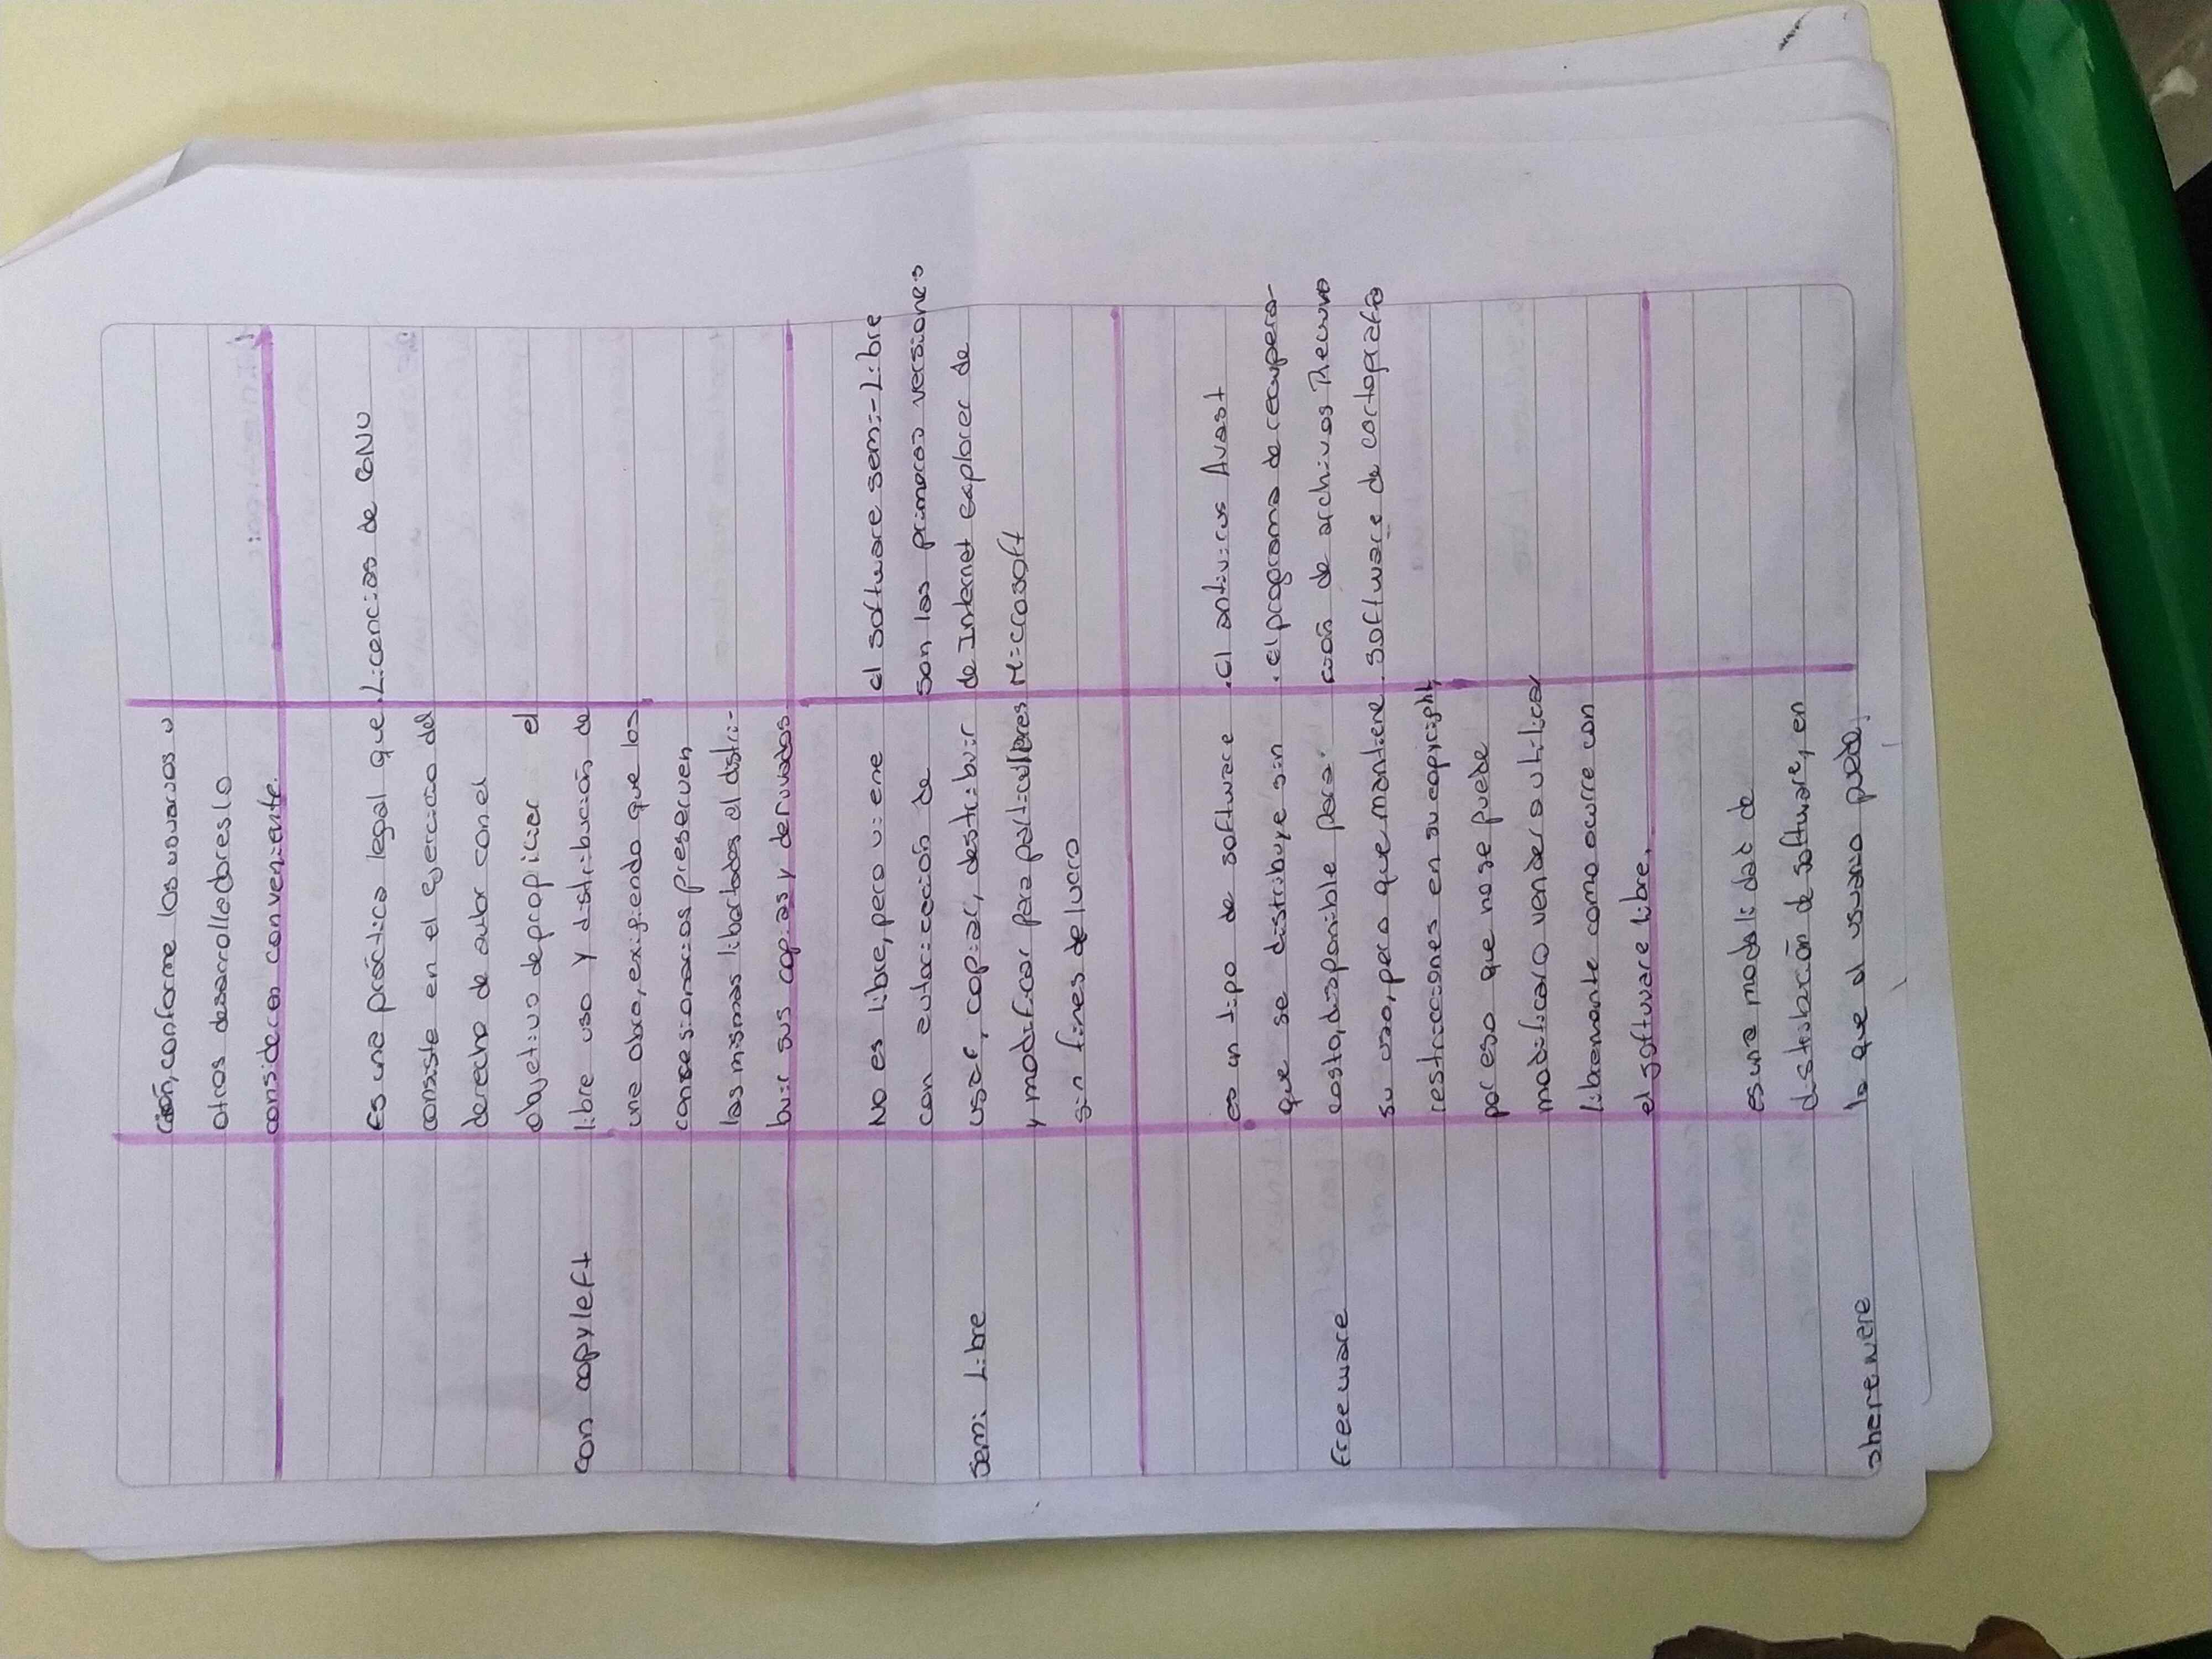 ción, conforme los usuarios u
otros desarrolladores lo
consideren conveniente.
con copyleft
Es una práctica legal que
consiste en el ejercicio del
derecho de autor con el
objetivo de propiciar el
libre uso y distribución de
una obra, exigiendo que los
concesionarios preserven
las mismas libertades al distri-
buir sus copias y derivados.
.Licencias de GNU
Semi Libre
No es libre, pero viene
con autorización de
usar, copiar, distribuir
y modificar para particulares
sin fines de lucro
el software semi-Libre
son las primeras versiones
de Internet explorer de
Microsoft
freeware
es un tipo de software
que se distribuye sin
costo, disponible para
su uso, pero que mantiene
restricciones en su
por eso que no se puede
modificar o vender o utilizar
libremente como ocurre con
el software libre.
.el antivirus Avast
.el programa de recupera-
ción de archivos Recuva
.software de
sherewere
es una modalidad de
distribución de software, en
la que el usuario puede,